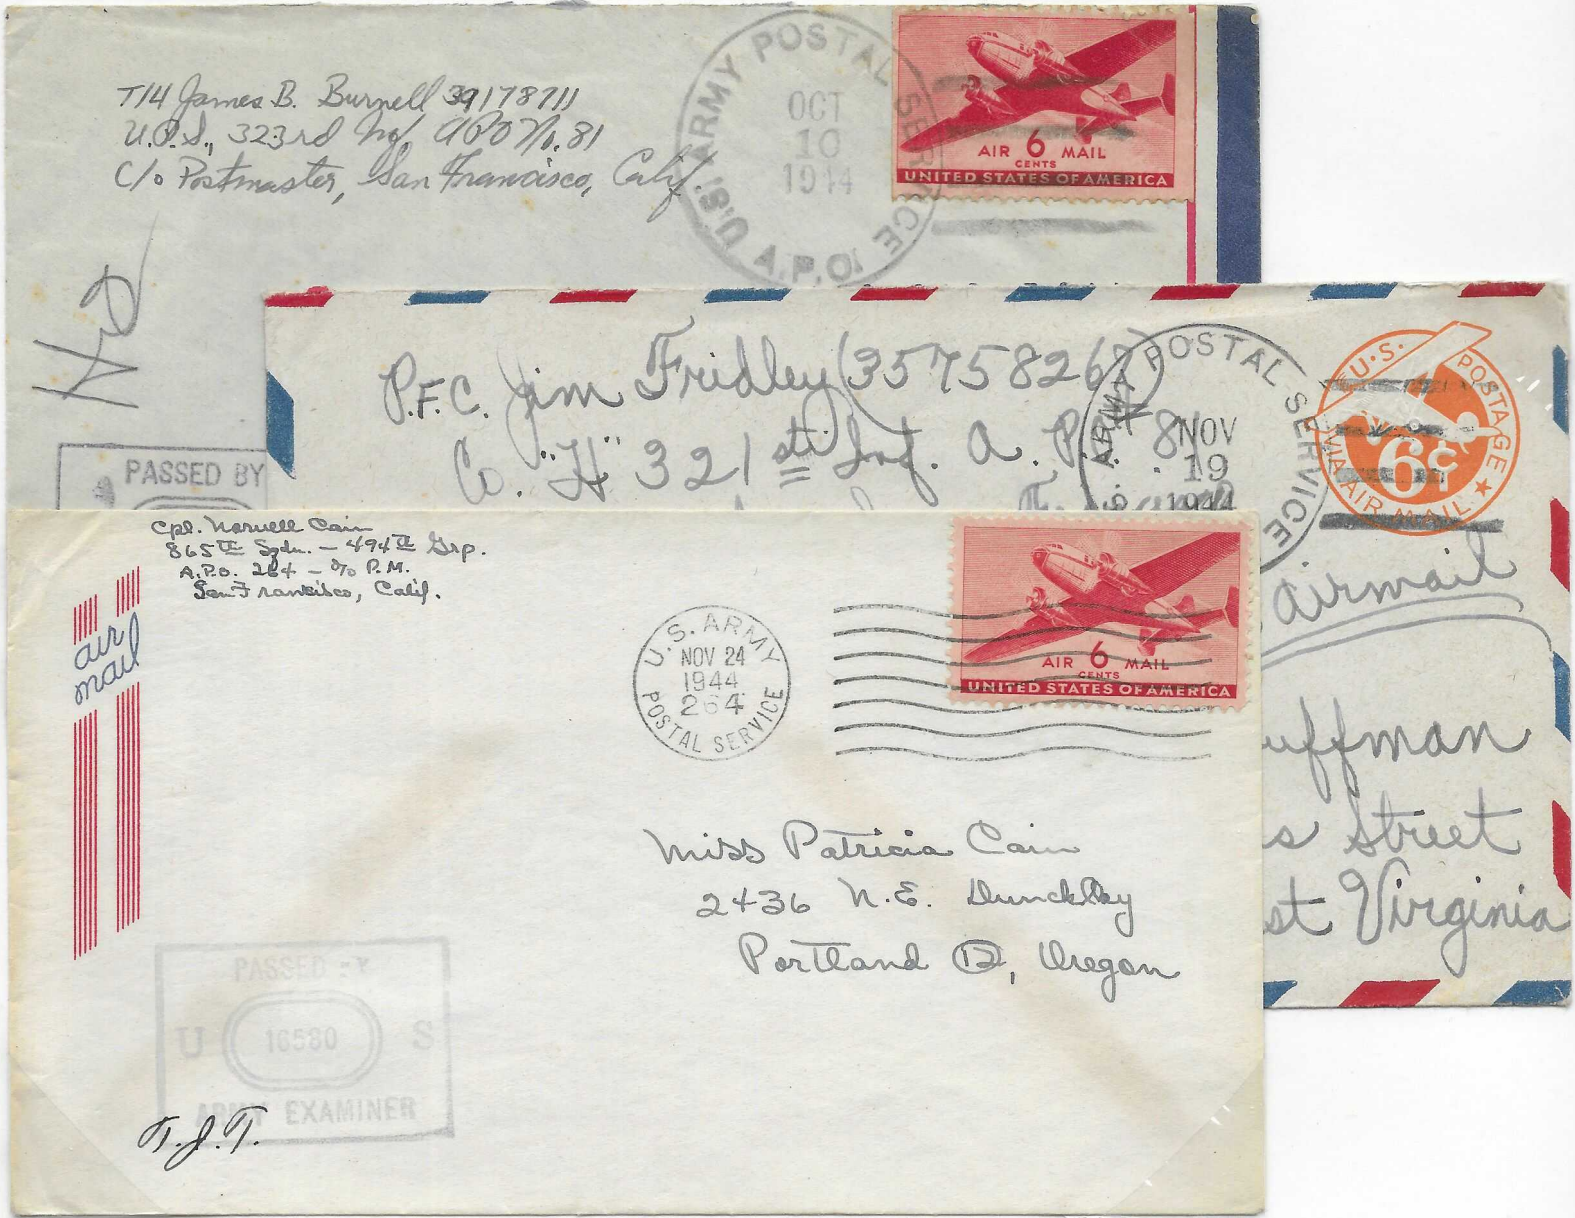 T/4 James B. Burnell 39178711
U.P.S., 323rd Inf. APO No. 81
c/o Postmaster, San Francisco, Calif.
U.S. ARMY POSTAL SERVICE
OCT
10
1944
A.P.O.
AIR 6 MAIL
CENTS
UNITED STATES OF AMERICA
PASSED BY
P.F.C. Jim Fridley (35758267)
Co. "H" 321st Inf. A.P.O. 81
ARMY POSTAL SERVICE
NOV
19
1944
U.S. POSTAGE
6¢
VIA AIR MAIL
airmail
uffman
s Street
st Virginia
Cpl. Norvell Cain
865th Sqdn. – 494th Grp.
A.P.O. 264 – c/o P.M.
San Francisco, Calif.
air
mail
U.S. ARMY
NOV 24
1944
264
POSTAL SERVICE
AIR 6 MAIL
CENTS
UNITED STATES OF AMERICA
Miss Patricia Cain
2436 N.E. Dunckley
Portland 12, Oregon
PASSED BY
U 16580 S
ARMY EXAMINER
T.J.T.